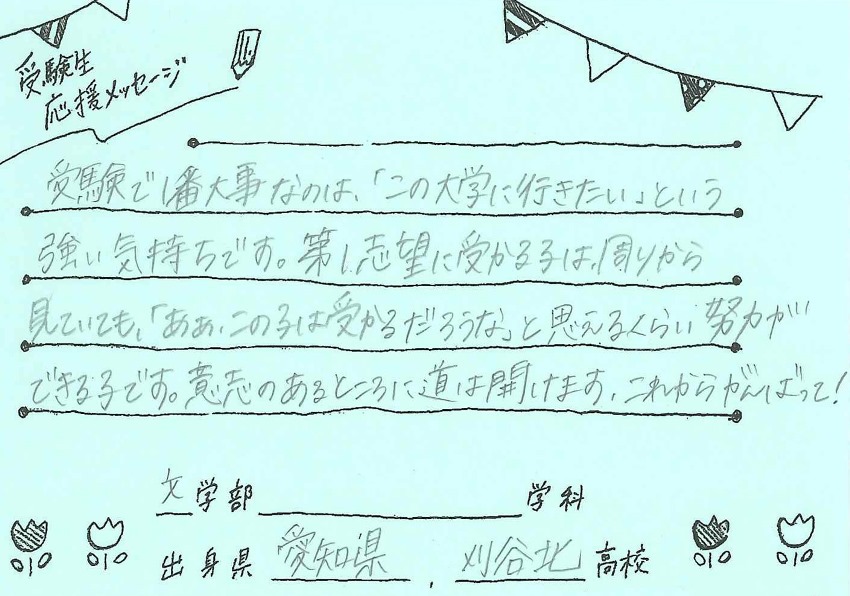 受験生
応援メッセージ
受験で1番大事なのは、「この大学に行きたい」という
強い気持ちです。第1志望に受かる子は、周りから
見ていても、「あぁ、この子は受かるだろうな」と思えるくらい努力が
できる子です。意志のあるところに道は開けます。これからがんばって!
文学部 学科
出身県 愛知県, 刈谷北高校